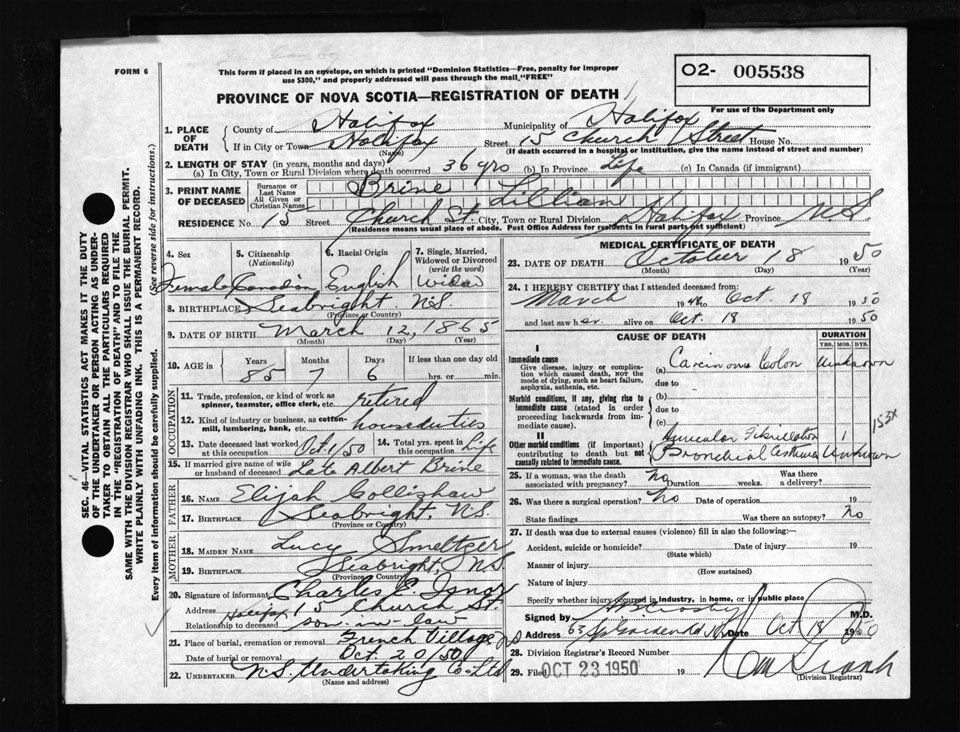 FORM 6
This form if placed in an envelope, on which is printed "Dominion Statistics—Free, penalty for improper
use $300," and properly addressed will pass through the mail "FREE"
O2- 005538
PROVINCE OF NOVA SCOTIA—REGISTRATION OF DEATH
For use of the Department only
1. PLACE OF DEATH County of Halifax Municipality of Halifax
If in City or Town Halifax Street 15 Church Street House No.
(Name) (If death occurred in a hospital or institution, give the name instead of street and number)
2. LENGTH OF STAY (in years, months and days)
(a) In City, Town or Rural Division where death occurred 36 yrs (b) In Province Life (c) In Canada (if immigrant)
3. PRINT NAME OF DECEASED Surname or Last Name Brine
All Given or Christian Names Lillian
RESIDENCE No. 15 Street Church St. City, Town or Rural Division Halifax Province N.S.
(Residence means usual place of abode. Post Office Address for residents in rural parts not sufficient)
4. Sex 5. Citizenship (Nationality) 6. Racial Origin 7. Single, Married, Widowed or Divorced (write the word)
Female Canadian English Widow
8. BIRTHPLACE Seabright N.S.
(Province or Country)
9. DATE OF BIRTH March 12, 1865
(Month) (Day) (Year)
10. AGE in Years Months Days If less than one day old
85 7 6 hrs. or min.
OCCUPATION
11. Trade, profession, or kind of work as spinner, teamster, office clerk, etc. retired
12. Kind of industry or business, as cotton-mill, lumbering, bank, etc. houseduties
13. Date deceased last worked at this occupation Oct 1/50 14. Total yrs. spent in this occupation Life
15. If married give name of wife or husband of deceased Late Albert Brine
FATHER
16. NAME Elijah Collishaw
17. BIRTHPLACE Seabright, N.S.
(Province or Country)
MOTHER
18. MAIDEN NAME Lucy Smeltzer
19. BIRTHPLACE Seabright, NS
(Province or Country)
20. Signature of informant Charles E.
Address Halifax 15 Church St.
Relationship to deceased son-in-law
21. Place of burial, cremation or removal French Village NS
Date of burial or removal Oct. 20/50
22. UNDERTAKER N.S. Undertaking Co Ltd
(Name and address)
MEDICAL CERTIFICATE OF DEATH
23. DATE OF DEATH October 18 1950
(Month) (Day) (Year)
24. I HEREBY CERTIFY that I attended deceased from:
March 1948 to Oct. 18 1950
and last saw her alive on Oct. 18 1950
CAUSE OF DEATH DURATION
YRS. MOS. DYS.
I
Immediate cause (a) Carcinoma Colon Unknown
Give disease, injury or complication which caused death, NOT the mode of dying, such as heart failure, asphyxia, asthenia, etc.
due to
Morbid conditions, if any, giving rise to immediate cause (stated in order proceeding backwards from immediate cause). (b)
due to
(c)
153X
II
Other morbid conditions (if important) contributing to death but not causally related to immediate cause.
Auricular Fibrillation 1
Bronchial Asthma Unknown
25. If a woman, was the death associated with pregnancy? No Duration weeks. Was there a delivery?
26. Was there a surgical operation? No Date of operation 19
State findings Was there an autopsy? No
27. If death was due to external causes (violence) fill in also the following:
Accident, suicide or homicide? Date of injury 19
(State which)
Manner of injury
(How sustained)
Nature of injury
Specify whether injury occurred in industry, in home, or in public place
Signed by Crosby M.D.
Address 63 Date Oct 18 1950
28. Division Registrar's Record Number
29. Filed OCT 23 1950 19
(Division Registrar)
SEC. 46—VITAL STATISTICS ACT MAKES IT THE DUTY
OF THE UNDERTAKER OR PERSON ACTING AS UNDER-
TAKER TO OBTAIN ALL THE PARTICULARS REQUIRED
IN THE "REGISTRATION OF DEATH" AND TO FILE THE
SAME WITH THE DIVISION REGISTRAR WHO SHALL ISSUE THE BURIAL PERMIT.
WRITE PLAINLY WITH UNFADING INK. THIS IS A PERMANENT RECORD.
Every item of information should be carefully supplied. (See reverse side for instructions.)